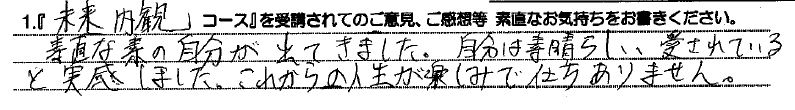 1.『未来内観』コース』を受講されてのご意見、ご感想等 素直なお気持ちをお書きください。
素直な素の自分が出てきました。自分は素晴らしい、愛されている
と実感しました。これからの人生が楽しみで仕ちありません。